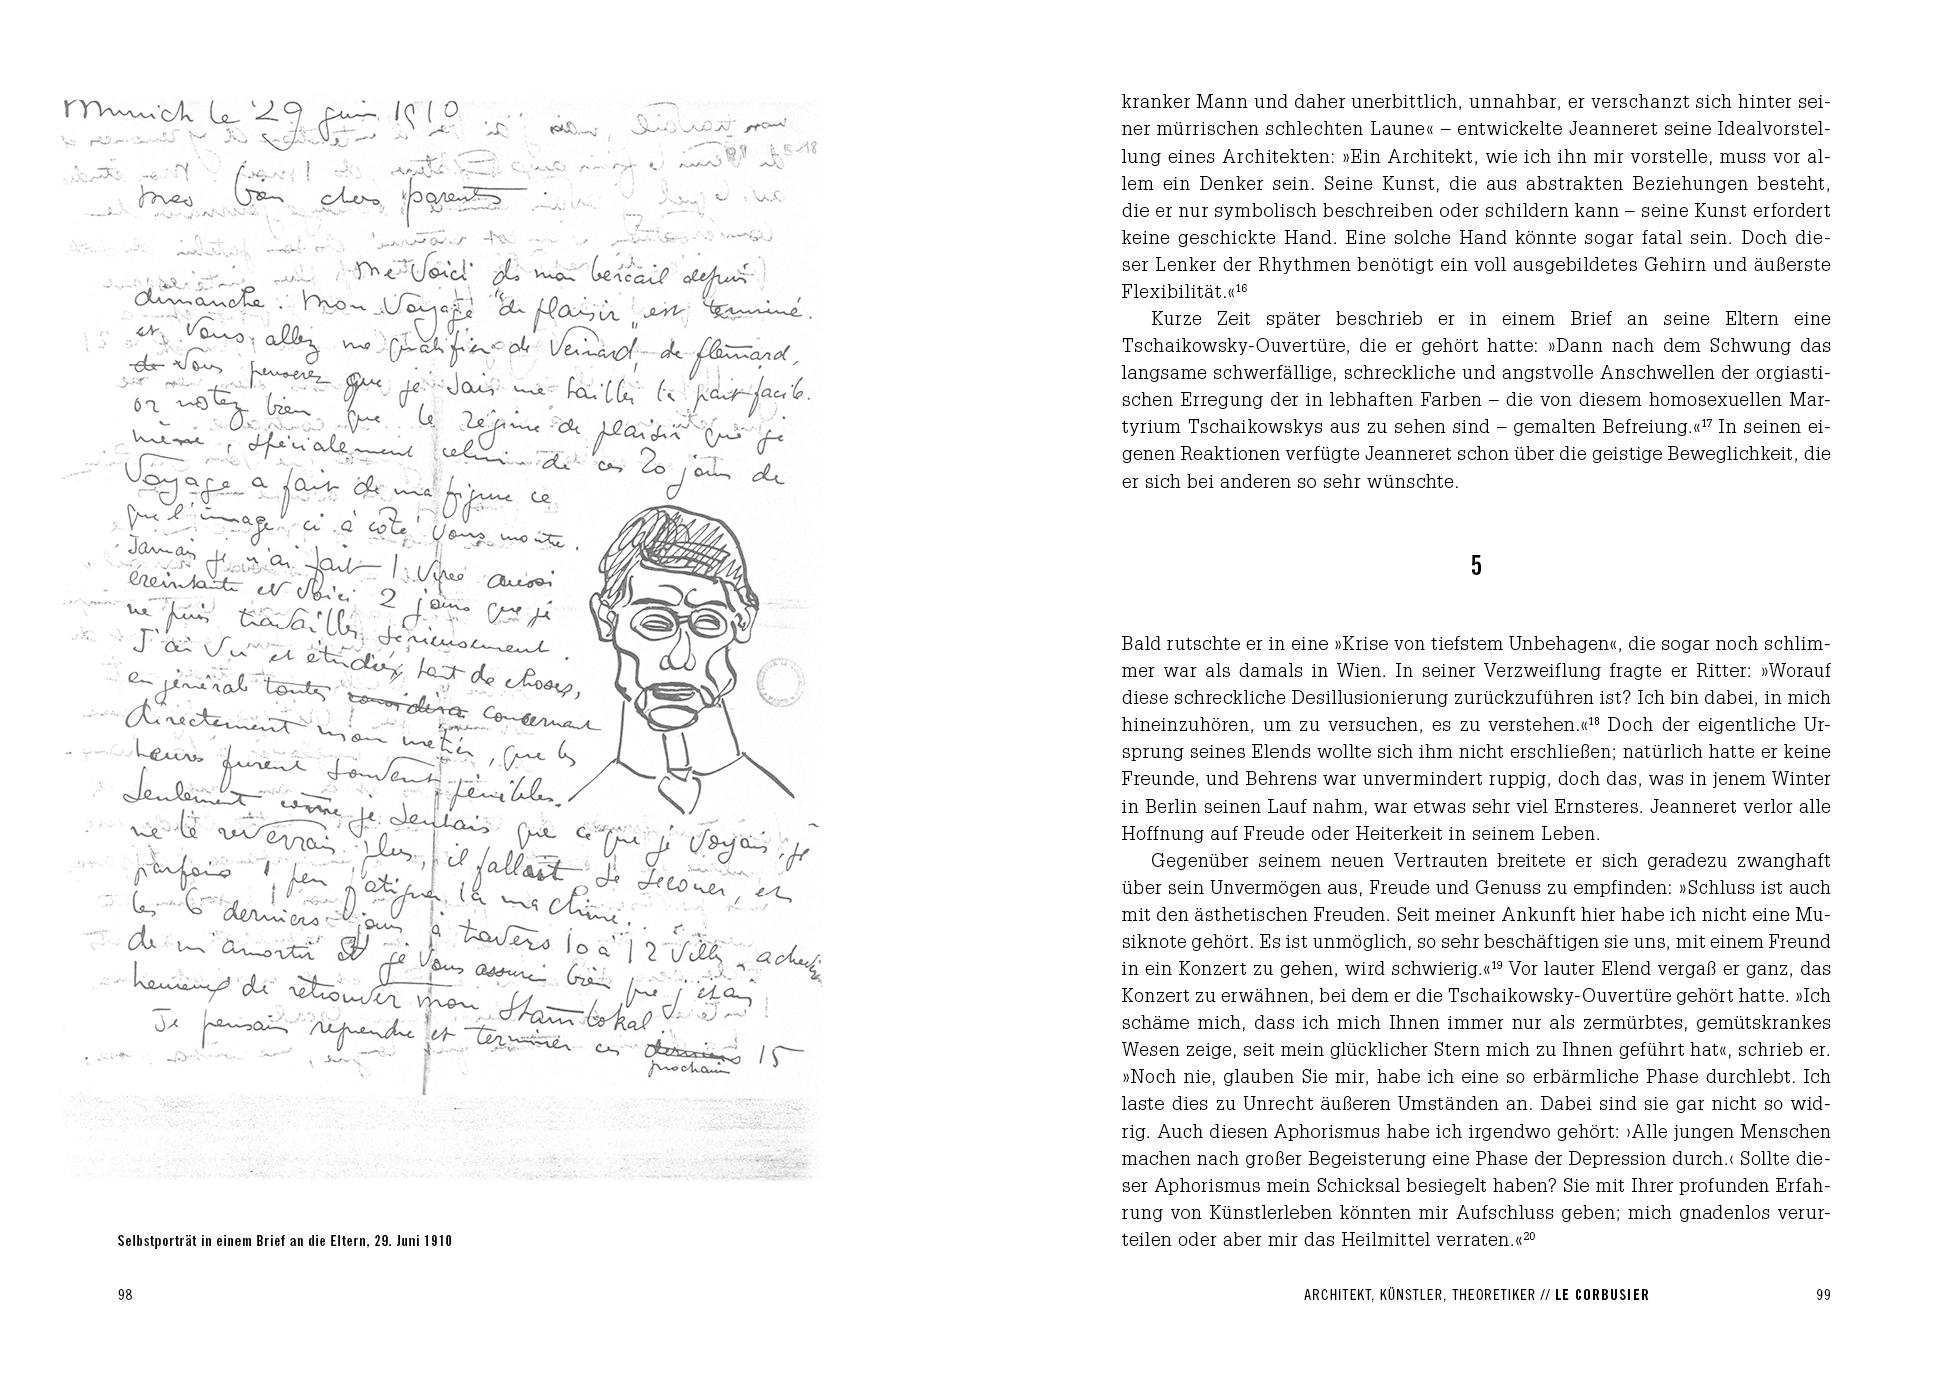 Munich le 29 juin 1910
mes bien chers parents
Me voici ds mon bercail depuis
dimanche. Mon Voyage "de plaisir" est terminé.
et vous allez me qualifier de veinard, de flemard,
de vous penserez que je sais me tailler la part facile.
or notez bien que le régime de plaisir que je
mène, spécialement celui de ces 20 jours de
Voyage a fait de ma figure ce
que l'image ci à côté vous montre.
Jamais je n'ai fait 1 virée aussi
éreintante et voici 2 jours que je
ne puis travailler sérieusement.
J'ai vu et étudié tant de choses,
en général toutes concernant
directement mon métier, que les
heures furent souvent pénibles.
Seulement comme je sentais que ce que je voyais, je
ne le reverrais plus, il fallait se secouer, et
parfois 1 peu fatiguer la machine.
les 6 derniers jours à travers 10 à 12 villes
de m'amortir et je vous assure bien que j'étais
heureux de retrouver mon Stamlokal.
Je pensais reprendre et terminer ces derniers 15
prochains
Selbstporträt in einem Brief an die Eltern, 29. Juni 1910
98
kranker Mann und daher unerbittlich, unnahbar, er verschanzt sich hinter sei-
ner mürrischen schlechten Laune« – entwickelte Jeanneret seine Idealvorstel-
lung eines Architekten: »Ein Architekt, wie ich ihn mir vorstelle, muss vor al-
lem ein Denker sein. Seine Kunst, die aus abstrakten Beziehungen besteht,
die er nur symbolisch beschreiben oder schildern kann – seine Kunst erfordert
keine geschickte Hand. Eine solche Hand könnte sogar fatal sein. Doch die-
ser Lenker der Rhythmen benötigt ein voll ausgebildetes Gehirn und äußerste
Flexibilität.«16
Kurze Zeit später beschrieb er in einem Brief an seine Eltern eine
Tschaikowsky-Ouvertüre, die er gehört hatte: »Dann nach dem Schwung das
langsame schwerfällige, schreckliche und angstvolle Anschwellen der orgiasti-
schen Erregung der in lebhaften Farben – die von diesem homosexuellen Mar-
tyrium Tschaikowskys aus zu sehen sind – gemalten Befreiung.«17 In seinen ei-
genen Reaktionen verfügte Jeanneret schon über die geistige Beweglichkeit, die
er sich bei anderen so sehr wünschte.
5
Bald rutschte er in eine »Krise von tiefstem Unbehagen«, die sogar noch schlim-
mer war als damals in Wien. In seiner Verzweiflung fragte er Ritter: »Worauf
diese schreckliche Desillusionierung zurückzuführen ist? Ich bin dabei, in mich
hineinzuhören, um zu versuchen, es zu verstehen.«18 Doch der eigentliche Ur-
sprung seines Elends wollte sich ihm nicht erschließen; natürlich hatte er keine
Freunde, und Behrens war unvermindert ruppig, doch das, was in jenem Winter
in Berlin seinen Lauf nahm, war etwas sehr viel Ernsteres. Jeanneret verlor alle
Hoffnung auf Freude oder Heiterkeit in seinem Leben.
Gegenüber seinem neuen Vertrauten breitete er sich geradezu zwanghaft
über sein Unvermögen aus, Freude und Genuss zu empfinden: »Schluss ist auch
mit den ästhetischen Freuden. Seit meiner Ankunft hier habe ich nicht eine Mu-
siknote gehört. Es ist unmöglich, so sehr beschäftigen sie uns, mit einem Freund
in ein Konzert zu gehen, wird schwierig.«19 Vor lauter Elend vergaß er ganz, das
Konzert zu erwähnen, bei dem er die Tschaikowsky-Ouvertüre gehört hatte. »Ich
schäme mich, dass ich mich Ihnen immer nur als zermürbtes, gemütskrankes
Wesen zeige, seit mein glücklicher Stern mich zu Ihnen geführt hat«, schrieb er.
»Noch nie, glauben Sie mir, habe ich eine so erbärmliche Phase durchlebt. Ich
laste dies zu Unrecht äußeren Umständen an. Dabei sind sie gar nicht so wid-
rig. Auch diesen Aphorismus habe ich irgendwo gehört: ›Alle jungen Menschen
machen nach großer Begeisterung eine Phase der Depression durch.‹ Sollte die-
ser Aphorismus mein Schicksal besiegelt haben? Sie mit Ihrer profunden Erfah-
rung von Künstlerleben könnten mir Aufschluss geben; mich gnadenlos verur-
teilen oder aber mir das Heilmittel verraten.«20
ARCHITEKT, KÜNSTLER, THEORETIKER // LE CORBUSIER
99